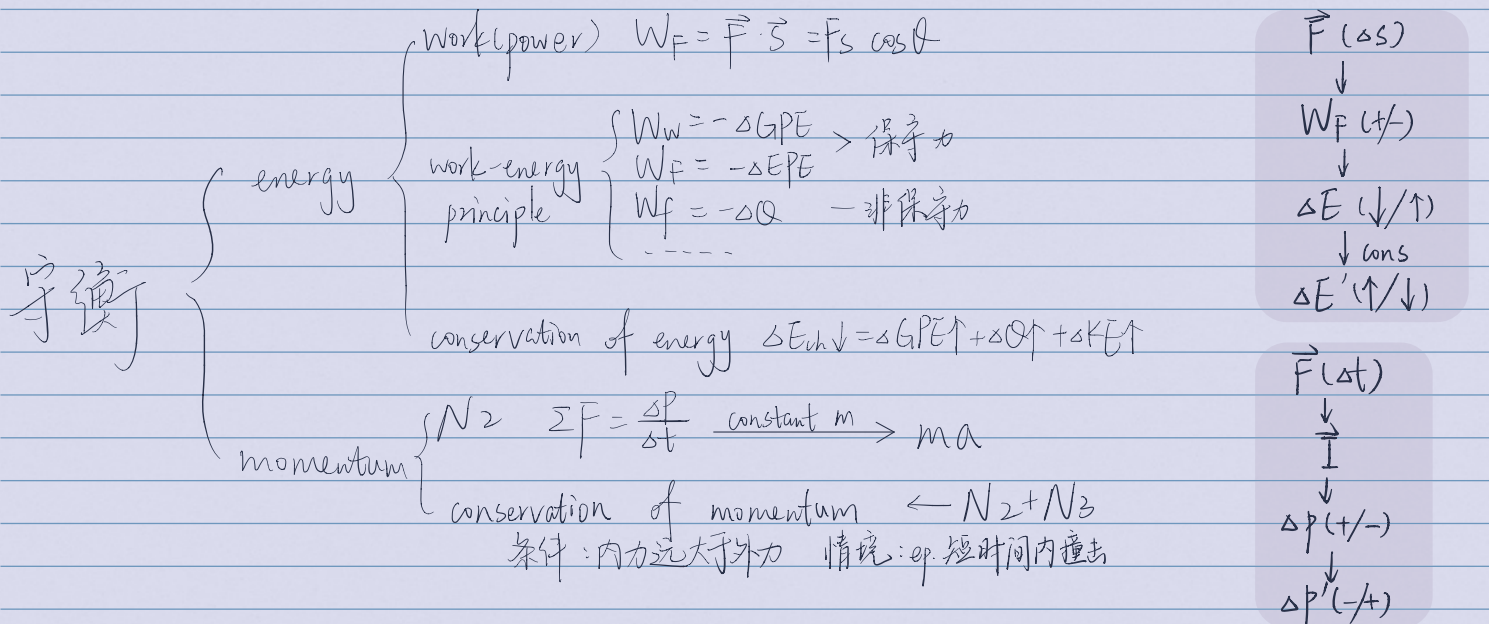 守衡
energy
work(power) W_F = F⃗·S⃗ = Fs cosθ
work-energy principle
W_W = -ΔGPE
W_F = -ΔEPE
> 保守力
W_f = -ΔQ — 非保守力
------
conservation of energy ΔE_ch↓ = ΔGPE↑ + ΔQ↑ + ΔKE↑
momentum
N2 ΣF = ΔP/Δt constant m → ma
conservation of momentum ← N2+N3
条件:内力远大于外力 情境:ep.短时间内撞击
F⃗ (Δs)
↓
W_F (+/-)
↓
ΔE (↓/↑)
↓ cons
ΔE'(↑/↓)
F⃗(Δt)
↓
I⃗
↓
Δp(+/-)
↓
Δp'(-/+)